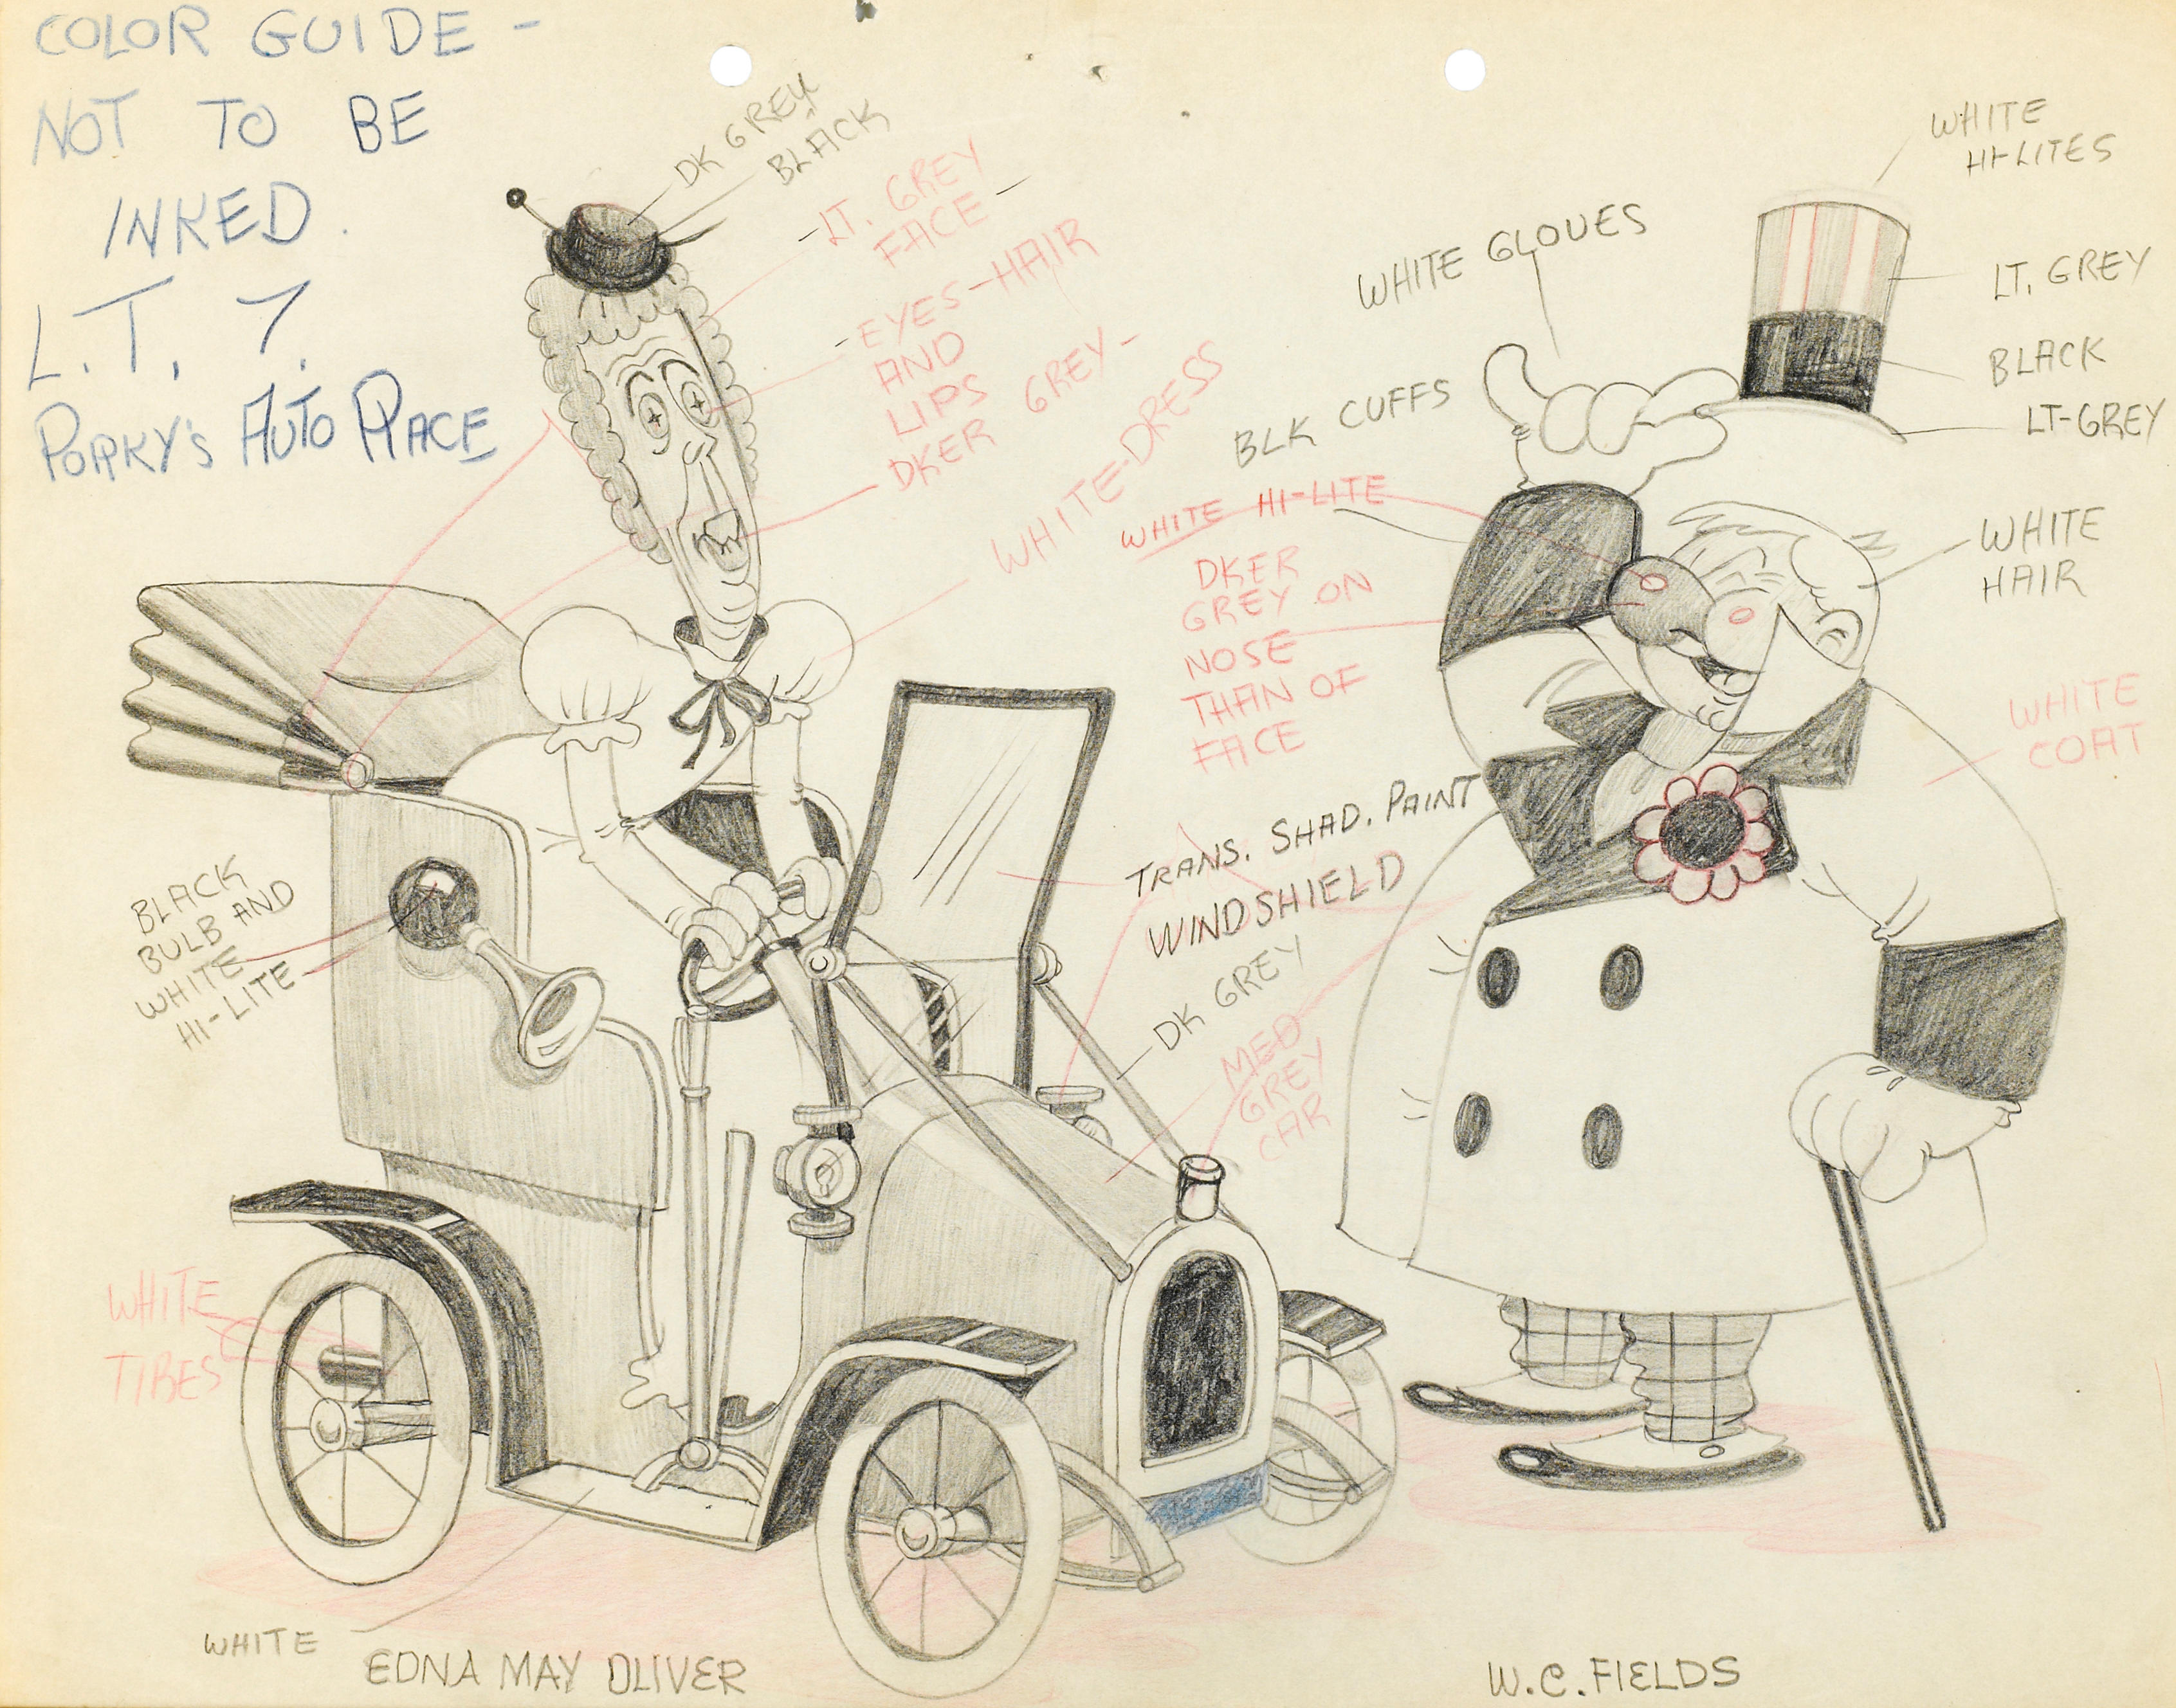 COLOR GUIDE -
NOT TO BE
INKED.
L.T. 7.
PORKY'S AUTO RACE
DK GREY
BLACK
LT. GREY
FACE
EYES-HAIR
AND
LIPS
DKER GREY-
WHITE-DRESS
WHITE GLOVES
BLK CUFFS
WHITE HI-LITE
DKER
GREY ON
NOSE
THAN OF
FACE
TRANS. SHAD. PAINT
WINDSHIELD
DK GREY
MED
GREY
CAR
WHITE
HI-LITES
LT. GREY
BLACK
LT-GREY
WHITE
HAIR
WHITE
COAT
BLACK
BULB AND
WHITE
HI-LITE
WHITE
TIRES
WHITE
EDNA MAY OLIVER
W.C. FIELDS